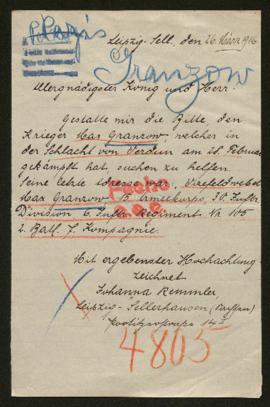 Leipzig-Sell. den 26. März 1916
Granzow
Allergnädigster König und Herr.
Gestatte mir die Bitte den
Krieger Max Granzow, welcher in
der Schlacht von Verdun am 21. Februar
gekämpft hat, suchen zu helfen.
Seine letzte Adresse war, Vizefeldwebel
Max Granzow, 15. Armeekorps, 30. Inftr.
Division 6. Inftr. Regiment Nr. 105
2. Batl. 7. Kompagnie.
Mit ergebenster Hochachtung
zeichnet
Johanna Remmler
Leipzig-Sellerhausen
4805